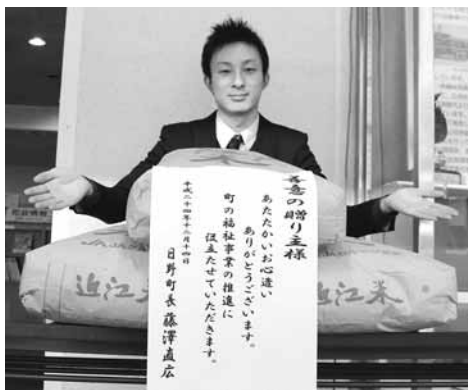 善意の贈り主様
あたたかいお心遣い
ありがとうございます。
町の福祉事業の推進に
役立たせていただきます。
平成二十四年十二月十四日
日野町長 藤澤直広
近江米
江米